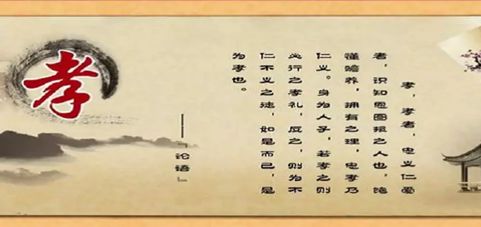 孝，孝者，忠义仁爱
者，识知恩图报之人也，
赡养，拥有之理，忠孝乃
仁义。身为人子，若孝之则
必行之孝礼，反之，则为不
仁不义之徒，如是而已，是
为孝也。
——『论语』
孝